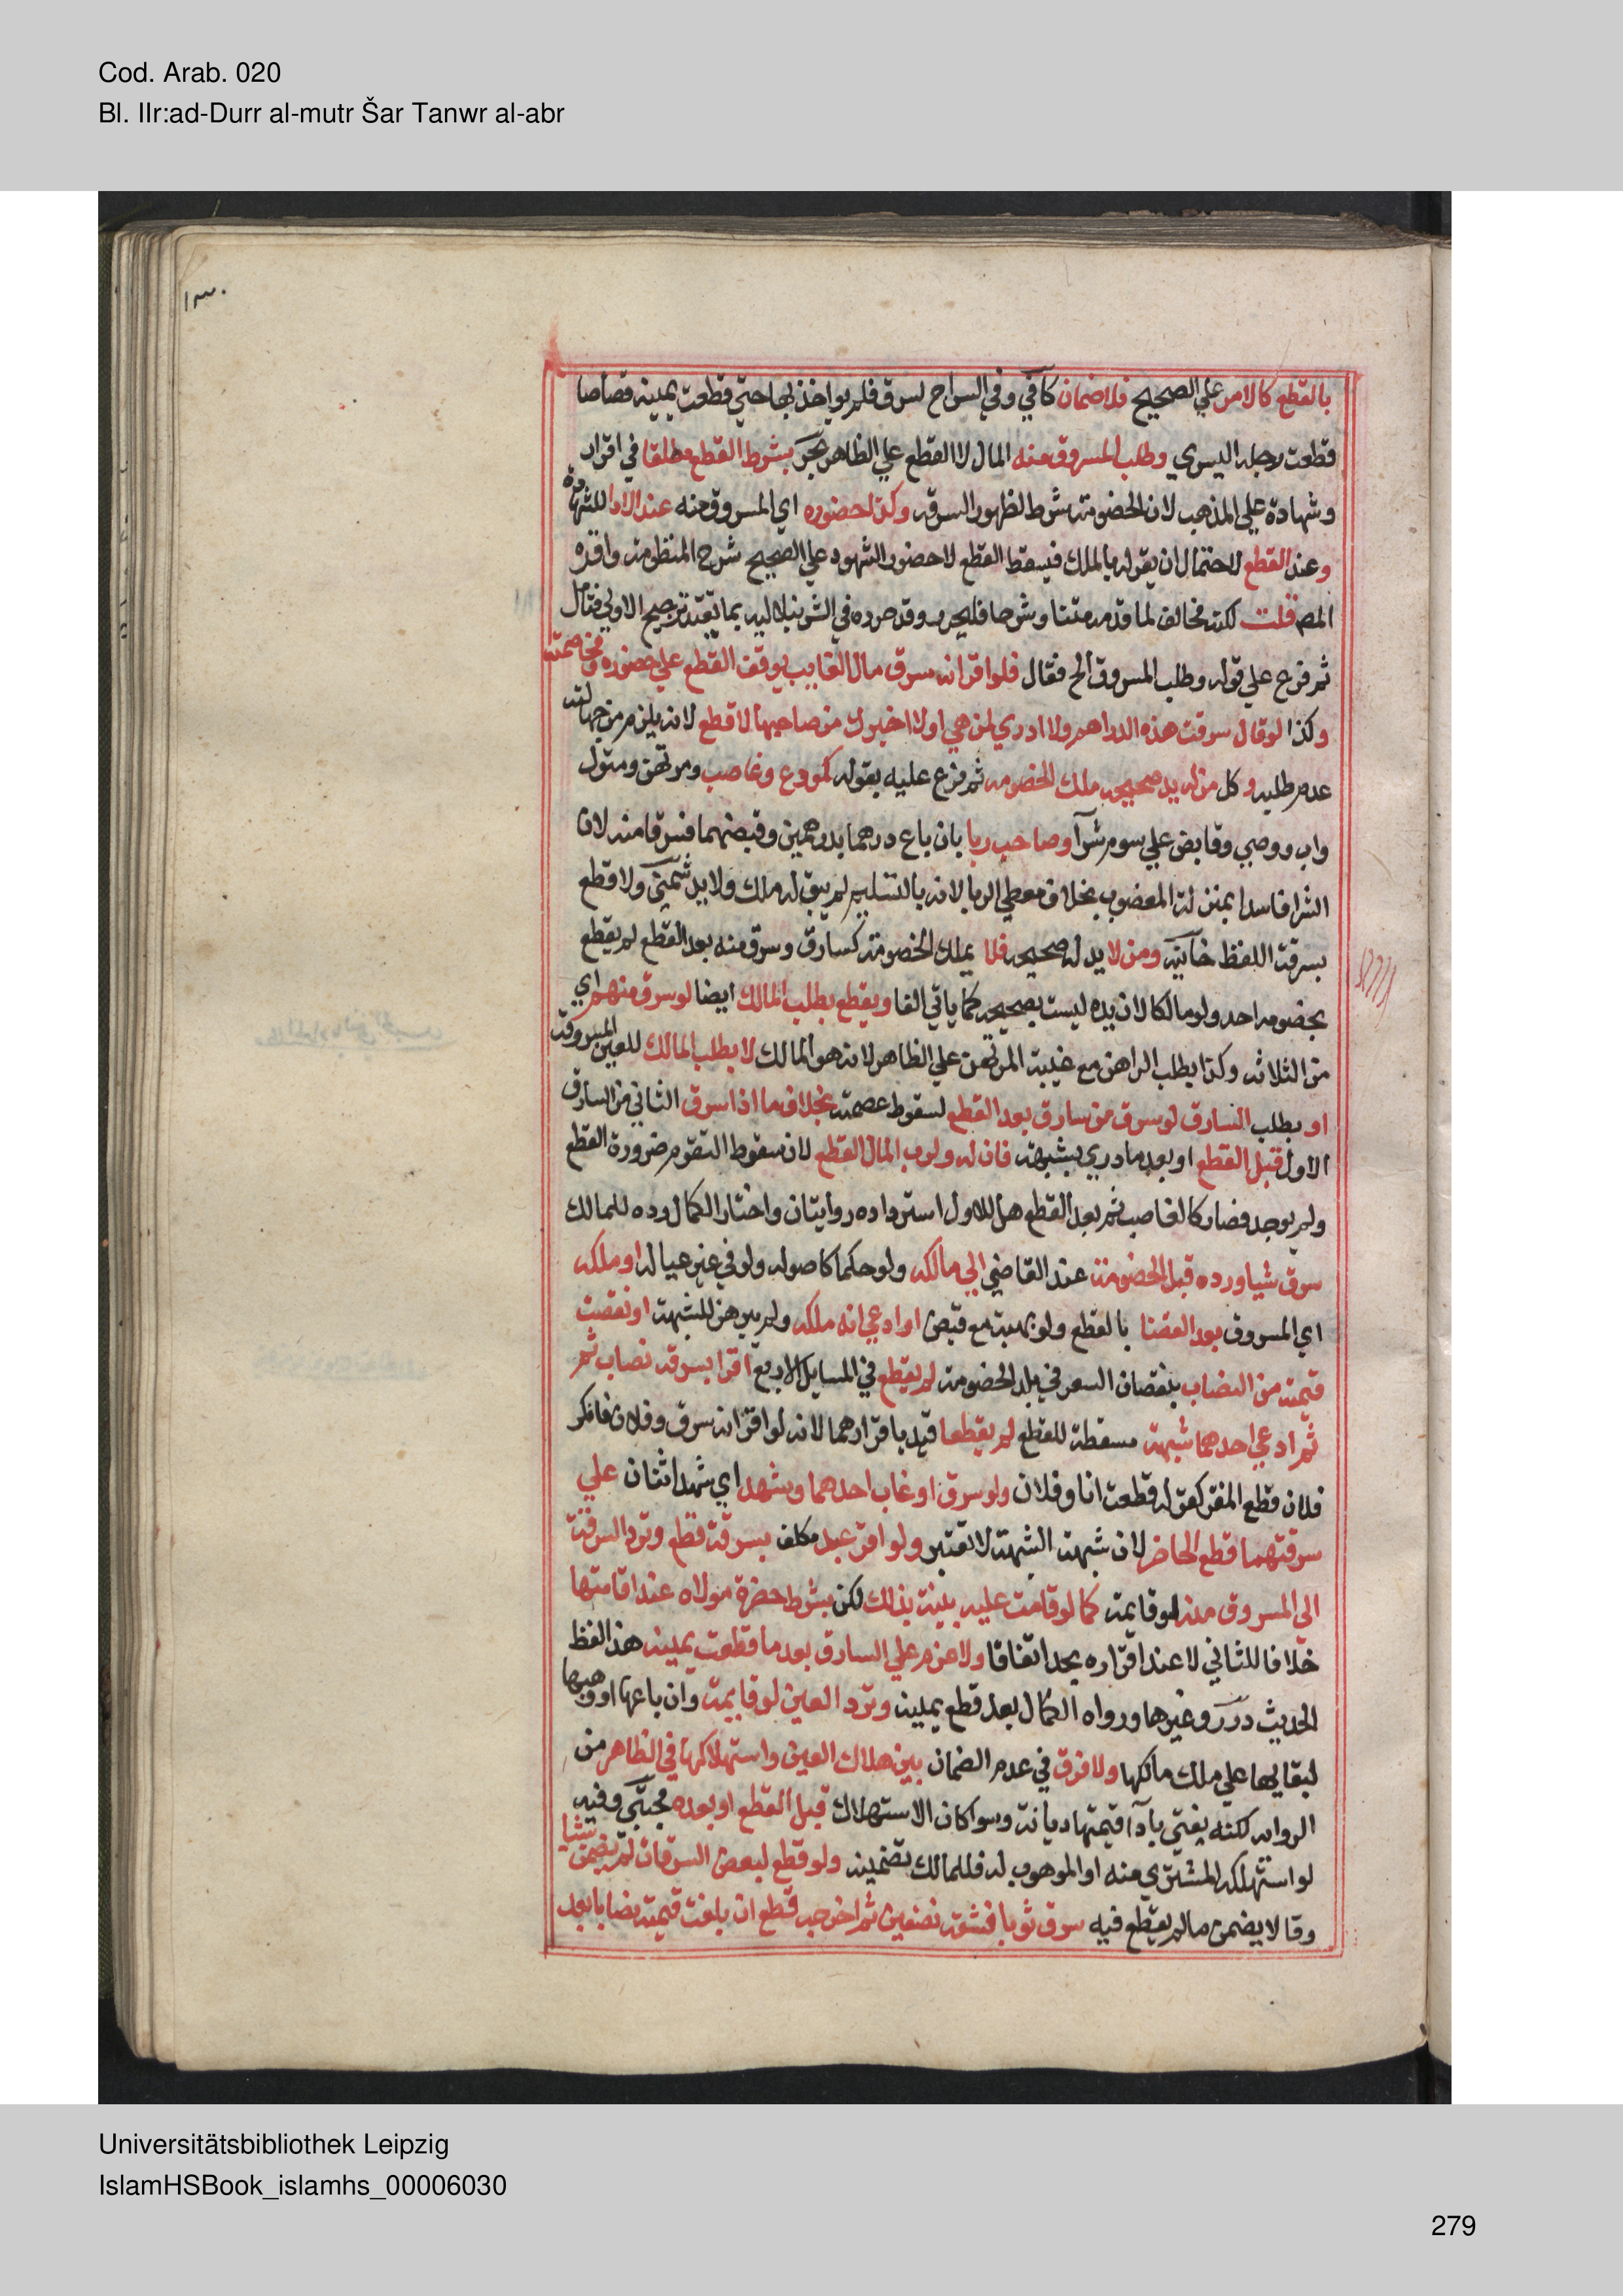 Cod. Arab. 020
Bl. IIr:ad-Durr al-mutr Šar Tanwr al-abr
١٣٠
بالقطع كالامر علي الصحيح فلا ضمان كافي وفي السراج لسرق فلم يواخذ بها حتي قطعت يمينه قصاصا
قطعت رجله اليسري وطلب المسروق منه المال لا القطع علي الظاهر بحر بشرط القطع مطلقا في اقرار
وشهادة علي المذهب لان الخصومة شرط لظهور السرقة وكذا حضوره اي المسروق منه عند الادا للشهادة
وعند القطع لاحتمال ان يقر له بالملك فيسقط القطع لا حضور الشهود علي الصحيح شرح المنظومة واقره
المص قلت لكنه مخالف لما قدمه متنا وشرحا فليحرر وقد حرره في الشرنبلالية بما يفيد ترجيح الاولي فتامل
ثم فرع علي قوله وطلب المسروق الخ فقال فلو اقر انه سرق مال الغايب يوقف القطع علي حضوره ومخاصمته
وكذا لو قال سرقت هذه الدراهم ولا ادري لمن هي اولا اخبرك من صاحبها لا قطع لانه يلزم من جهالته
عدم طلبه وكل من له يد صحيحة ملك الخصومة ثم فرع عليه بقوله كمودع وغاصب ومرتهن ومتول
واب ووصي وقابض علي سوم شرآ وصاحب ربا بان باع درهما بدرهمين وقبضهما فسرقا منه لان
الشرا فاسدا بمنزلة المغصوب بخلاف معطي الربا لانه بالتسليم لم يبق له ملك ولا يد شمني ولا قطع
بسرقة اللفظ خانية ومن لا يد له صحيحة فلا يملك الخصومة كسارق وسرق منه بعد القطع لم يقطع
بخصومة احد ولو مالكا لان يده ليست بصحيحة كما ياتي الفا ويقطع بطلب المالك ايضا لو سرق منهم اي
من الثلاثة وكذا بطلب الراهن مع غيبة المرتهن علي الظاهر لانه هو المالك لا بطلب المالك للعين المسروقة
او بطلب السارق لو سرق من سارق بعد القطع لسقوط عصمته بخلاف ما اذا سرق الثاني من السارق
الاول قبل القطع او بعد ما دري بشبهة فان له ولرب المال القطع لان سقوط التقوم ضرورة القطع
ولم يوجد فصار كالغاصب ثم بعد القطع هل للاول استرداده روايتان واختار الكمال رده للمالك
سرق شيا ورده قبل الخصومة عند القاضي الي مالكه ولو حكما كاصوله ولو في غير عياله او ملكه
اي المسروق بعد القضا بالقطع ولو بهبة مع قبض او ادعي انه ملكه ولم يبرهن للشبهة او نقصت
قيمته من النصاب بنقصان السعر في بلد الخصومة لم يقطع في المسايل الاربع اقرا بسرقة نصاب ثم
ثم ادعي احدهما شبهة مسقطة للقطع لم يقطعا قيد باقرارهما لانه لو اقر انه سرق وفلان فانكر
فلان قطع المقر كقوله قطعت انا وفلان ولو سرق او غاب احدهما وشهد اي شهد اثنان علي
سرقتهما قطع الحاضر لان شبهة الشبهة لا تعتبر ولو اقر عبد مكلف بسرقة قطع وترد السرقة
الي المسروق منه لو قايمة كما لو قامت عليه بينة بذلك لكن بشرط حضرة مولاه عند اقامتها
خلافا للثاني لا عند اقراره بحد اتفاقا ولا غرم علي السارق بعد ما قطعت يمينه هذا لفظ
الحديث درر وغيرها ورواه الكمال بعد قطع يمينه وترد العين لو قايمة وان باعها او وهبها
لبقايها علي ملك مالكها ولا فرق في عدم الضمان بين هلاك العين واستهلاكها في الظاهر من
الرواية لكنه يفتي بادآ قيمتها ديانة وسوا كان الاستهلاك قبل القطع او بعده مجتبي وفيه
لو استهلكه المشتري منه او الموهوب له فللمالك تضمينه ولو قطع لبعض السرقات لم يضمن شيا
وقالا يضمن ما لم يقطع فيه سرق ثوبا فشقه نصفين ثم اخرجه قطع ان بلغت قيمته نصابا بعد
Universitätsbibliothek Leipzig
IslamHSBook_islamhs_00006030
279